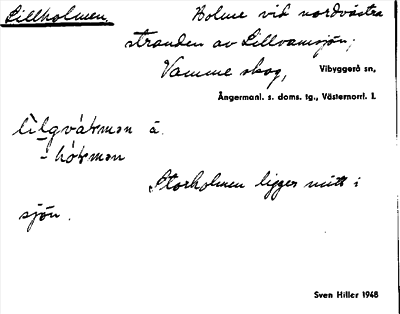 Lillholmen, Holme vid nordvästra
stranden av Lillvamsjön;
Vamme skog, Vibyggerå sn,
Ångermanl. s. doms. tg., Västernorrl. l.
å.
Storholmen ligger mitt i
sjön.
Sven Hiller 1948